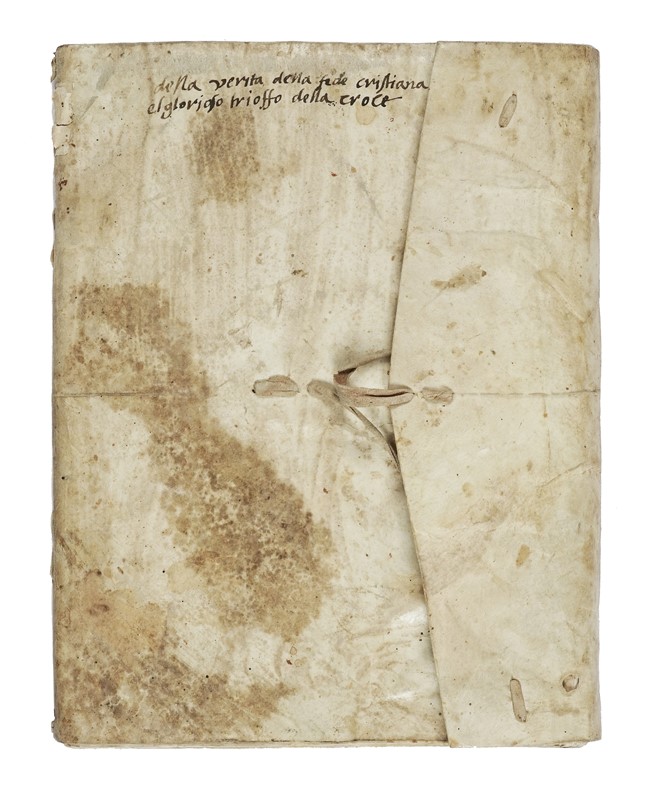 della verita della fede cristiana
el glorioso trioffo della croce